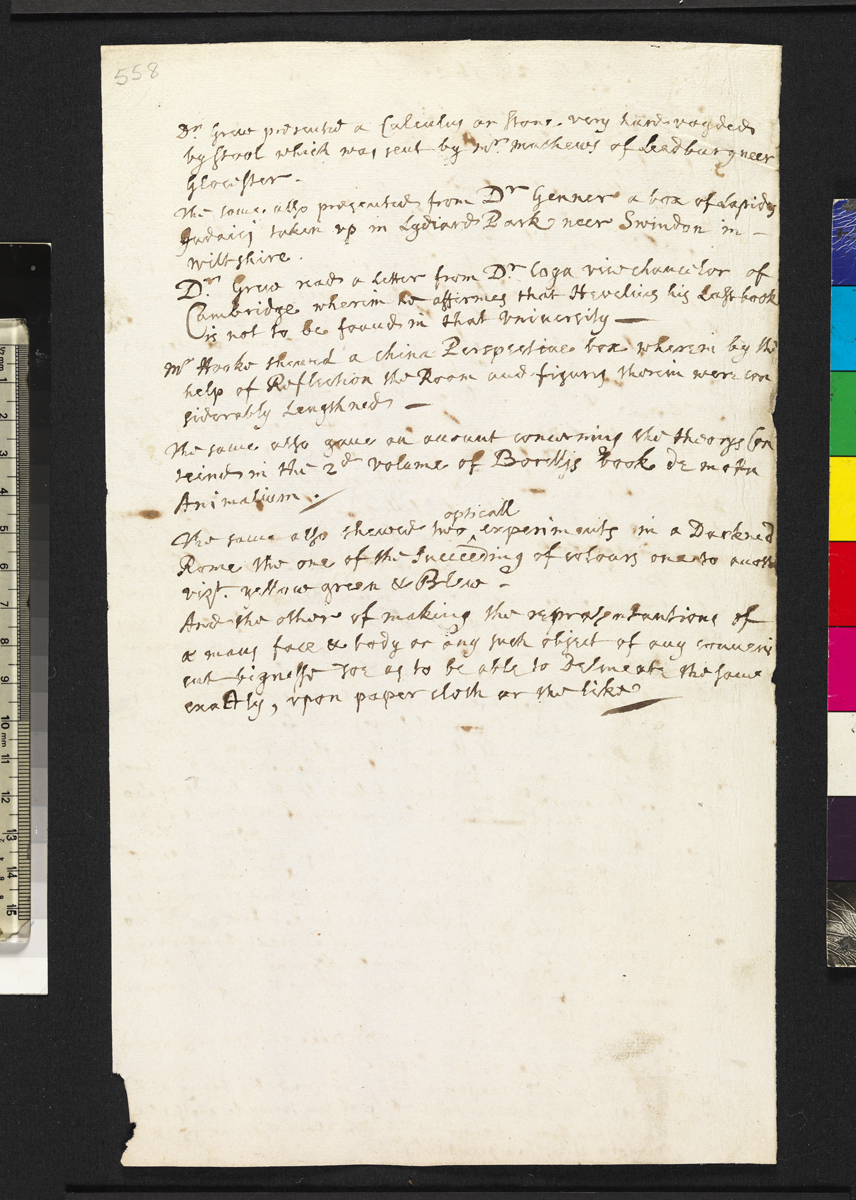 558
Dr Grew presented a Calculus or stone very hard voyded
by stool which was sent by mr. Mathews of Leadbury neer
Glocester.
The same also presented from Dr Genner a box of Lapides
Judaici taken vp in Lydiard Park neer Swindon in -
Wiltshire.
Dr. Grew read a Letter from Dr Coga vicechancelor of
Cambridge wherin he affirmes that Hevelius his Last book
is not to be found in that Vniversity —
mr Hooke shewed a china Perspective box wherein by the
help of Reflection the Room and figures therein were con
siderably Lengthned —
The same also gave an account concerning the theorys Con
teind in the 2d volume of Borellys book de motu
Animalium.
opticall
The same also shewed two ^ experiments in a Darkned
Rome the one of the Succeeding of colours one to anoth
vizt. yellow green & Blew -
And the other of making the representations of
a mans face & body or any such object of any conveni
ent bignesse soe as to be able to Delineate the same
exactly, vpon paper cloth or the like
mm 1 2 3 4 5 6 7 8 9 10 mm 11 12 13 14 15